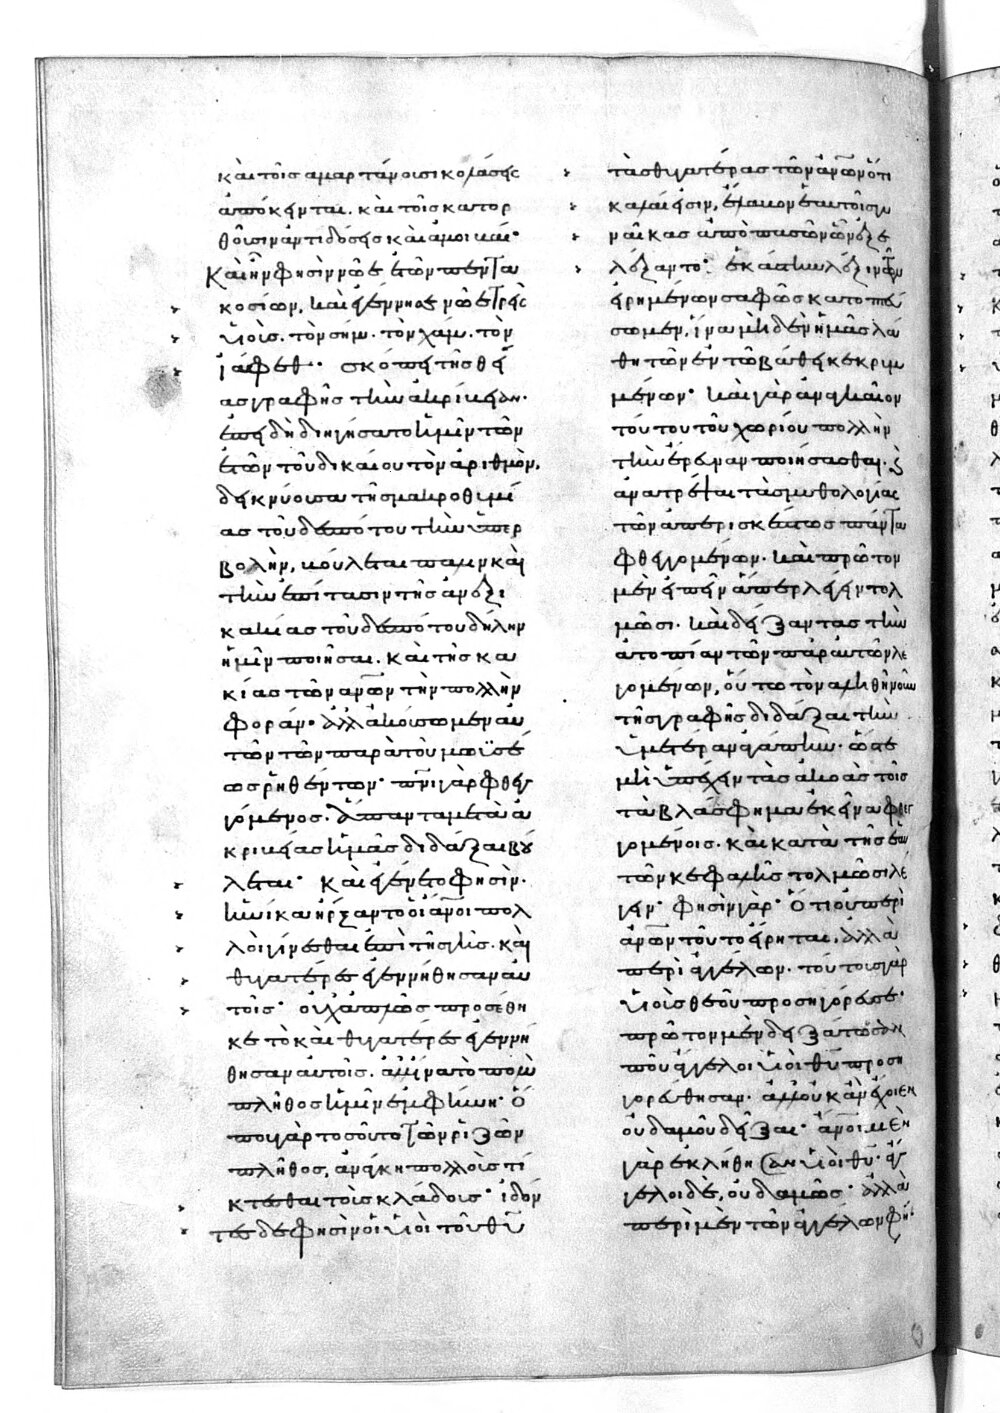 καὶ τοῖς ἁμαρτάνουσι κολάσεις
ἀπόκεινται. καὶ τοῖς κατορ
θοῦσιν ἀντιδόσεις καὶ ἀμοιβαί·
Καὶ ἦν φησὶ νῶε ἐτῶν πεντα
κοσίων, καὶ ἐγέννησε νῶε τρεῖς
υἱοὺς. τὸν σὴμ. τὸν χάμ. τὸν
ἰάφεθ· σκόπει τῆς θεί
ας γραφῆς τὴν ἀκρίβειαν.
ἐπειδὴ διηγήσατο ἡμῖν τῶν
ἐτῶν τοῦ δικαίου τὸν ἀριθμὸν,
δεικνύουσα τῆς μακροθυμί
ας τοῦ δεσπότου τὴν ὑπερ
βολὴν, βούλεται πάλιν καὶ
τὴν ἐπίτασιν τῆς ἀνεξι
κακίας τοῦ δεσπότου δήλην
ἡμῖν ποιῆσαι. καὶ τῆς κα
κίας τῶν ἀνων τὴν πολλὴν
φοράν· ἀλλ ἀκούσωμεν αὐ
τῶν τῶν παρὰ τοῦ μωϋσέ
ως ῥηθέντων· πνι γὰρ φθεγ
γόμενος. ἅπαντα μετὰ ἀ
κριβείας ἡμᾶς διδάξαι βού
λεται· καὶ ἐγένετο φησὶν.
ἡνίκα ἤρξαντο οἱ ἄνοι πολ
λοὶ γίνεσθαι ἐπὶ τῆς γῆς. καὶ
θυγατέρες ἐγεννήθησαν αὐ
τοῖς· οὐχ ἁπλῶς προσέθη
κε τὸ καὶ θυγατέρες ἐγεννή
θησαν αὐτοῖς. ἀλλ ἵνα τὸ πολὺ
πλῆθος ἡμῖν ἐμφήνῃ· ὅ
που γὰρ τοσοῦτο τῶν ῥιζῶν
πλῆθος, ἀνάγκη πολλοὺς τί
κτεσθαι τοὺς κλάδους· ἰδόν
τες δὲ φησὶν οἱ υἱοὶ τοῦ θυ
τὰς θυγατέρας τῶν ἀνων ὅτι
καλαί εἰσιν, ἔλαβον ἑαυτοῖς γυ
ναῖκας ἀπὸ πασῶν ὧν ἐξε
λέξαντο· ἑκάστην λέξιν τῶν
εἰρημένων σαφῶς κατοπτεύ
σωμεν, ἵνα μηδὲν ἡμᾶς λά
θῃ τῶν ἐν τῶ βάθει κεκρυμ
μένων· καὶ γὰρ ἀναγκαῖον
τούτου τοῦ χωρίου πολλὴν
τὴν ἔρευναν ποιήσασθαι. καὶ
ἀνατρέψαι τὰς μυθολογίας
τῶν ἀπερισκέπτως πάντα
φθεγγομένων· καὶ πρῶτον
μὲν εἰπεῖν ἅπερ λέγειν τολ
μῶσι. καὶ δείξαντας τὴν
ἀτοπίαν τῶν παρ αὐτῶν λε
γομένων, οὕτω τὸν ἀληθῆ νοῦν
τῆς γραφῆς διδάξαι τὴν
ὑμετέραν ἀγάπην. ὥστε
μὴ ὑπέχειν τὰς ἀκοὰς τοῖς
τὰ βλάσφημα ἐκεῖνα φθεγ
γομένοις. καὶ κατὰ τῆς ἑαυ
τῶν κεφαλῆς τολμῶσι λέ
γειν· φησὶ γὰρ· ὅτι οὐ περὶ
ἀνων τοῦτο εἴρηται, ἀλλὰ
περὶ ἀγγέλων. τούτους γὰρ
υἱοὺς θεοῦ προσηγόρευσε·
πρῶτον μὲν δειξάτωσαν
ποῦ ἄγγελοι υἱοὶ θυ προση
γορεύθησαν. ἀλλ οὐκ ἂν ἔχοιεν
οὐδαμοῦ δεῖξαι· ἄνοι μὲν
γὰρ ἐκλήθησαν υἱοὶ θυ· ἄγ
γελοι δὲ, οὐδαμῶς· ἀλλὰ
περὶ μὲν τῶν ἀγγέλων φη